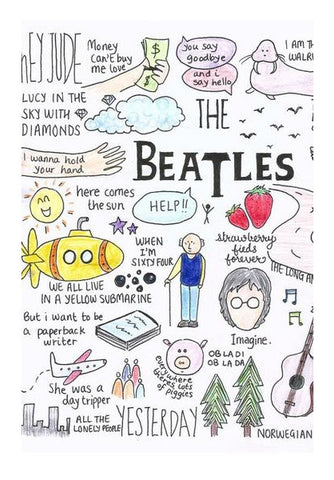 HEY JUDE
Money
can't buy
me love
you say
goodbye
and i
say hello
I AM TH
WALR
LUCY IN THE
SKY WITH
DIAMONDS
THE
BEATLES
I wanna hold
your hand
here comes
the sun
HELP!!
strawberry
fieds
forever
THE LONG AN
WHEN
I'M
SIXTY FOUR
WE ALL LIVE
IN A YELLOW SUBMARINE
But i want to
be a paperback
writer
Imagine.
everywhere
theres lots
of piggies
OB LA DI
OB LA DA
She was a
day tripper
ALL THE
LONELY PEOPLE
YESTERDAY
NORWEGIAN